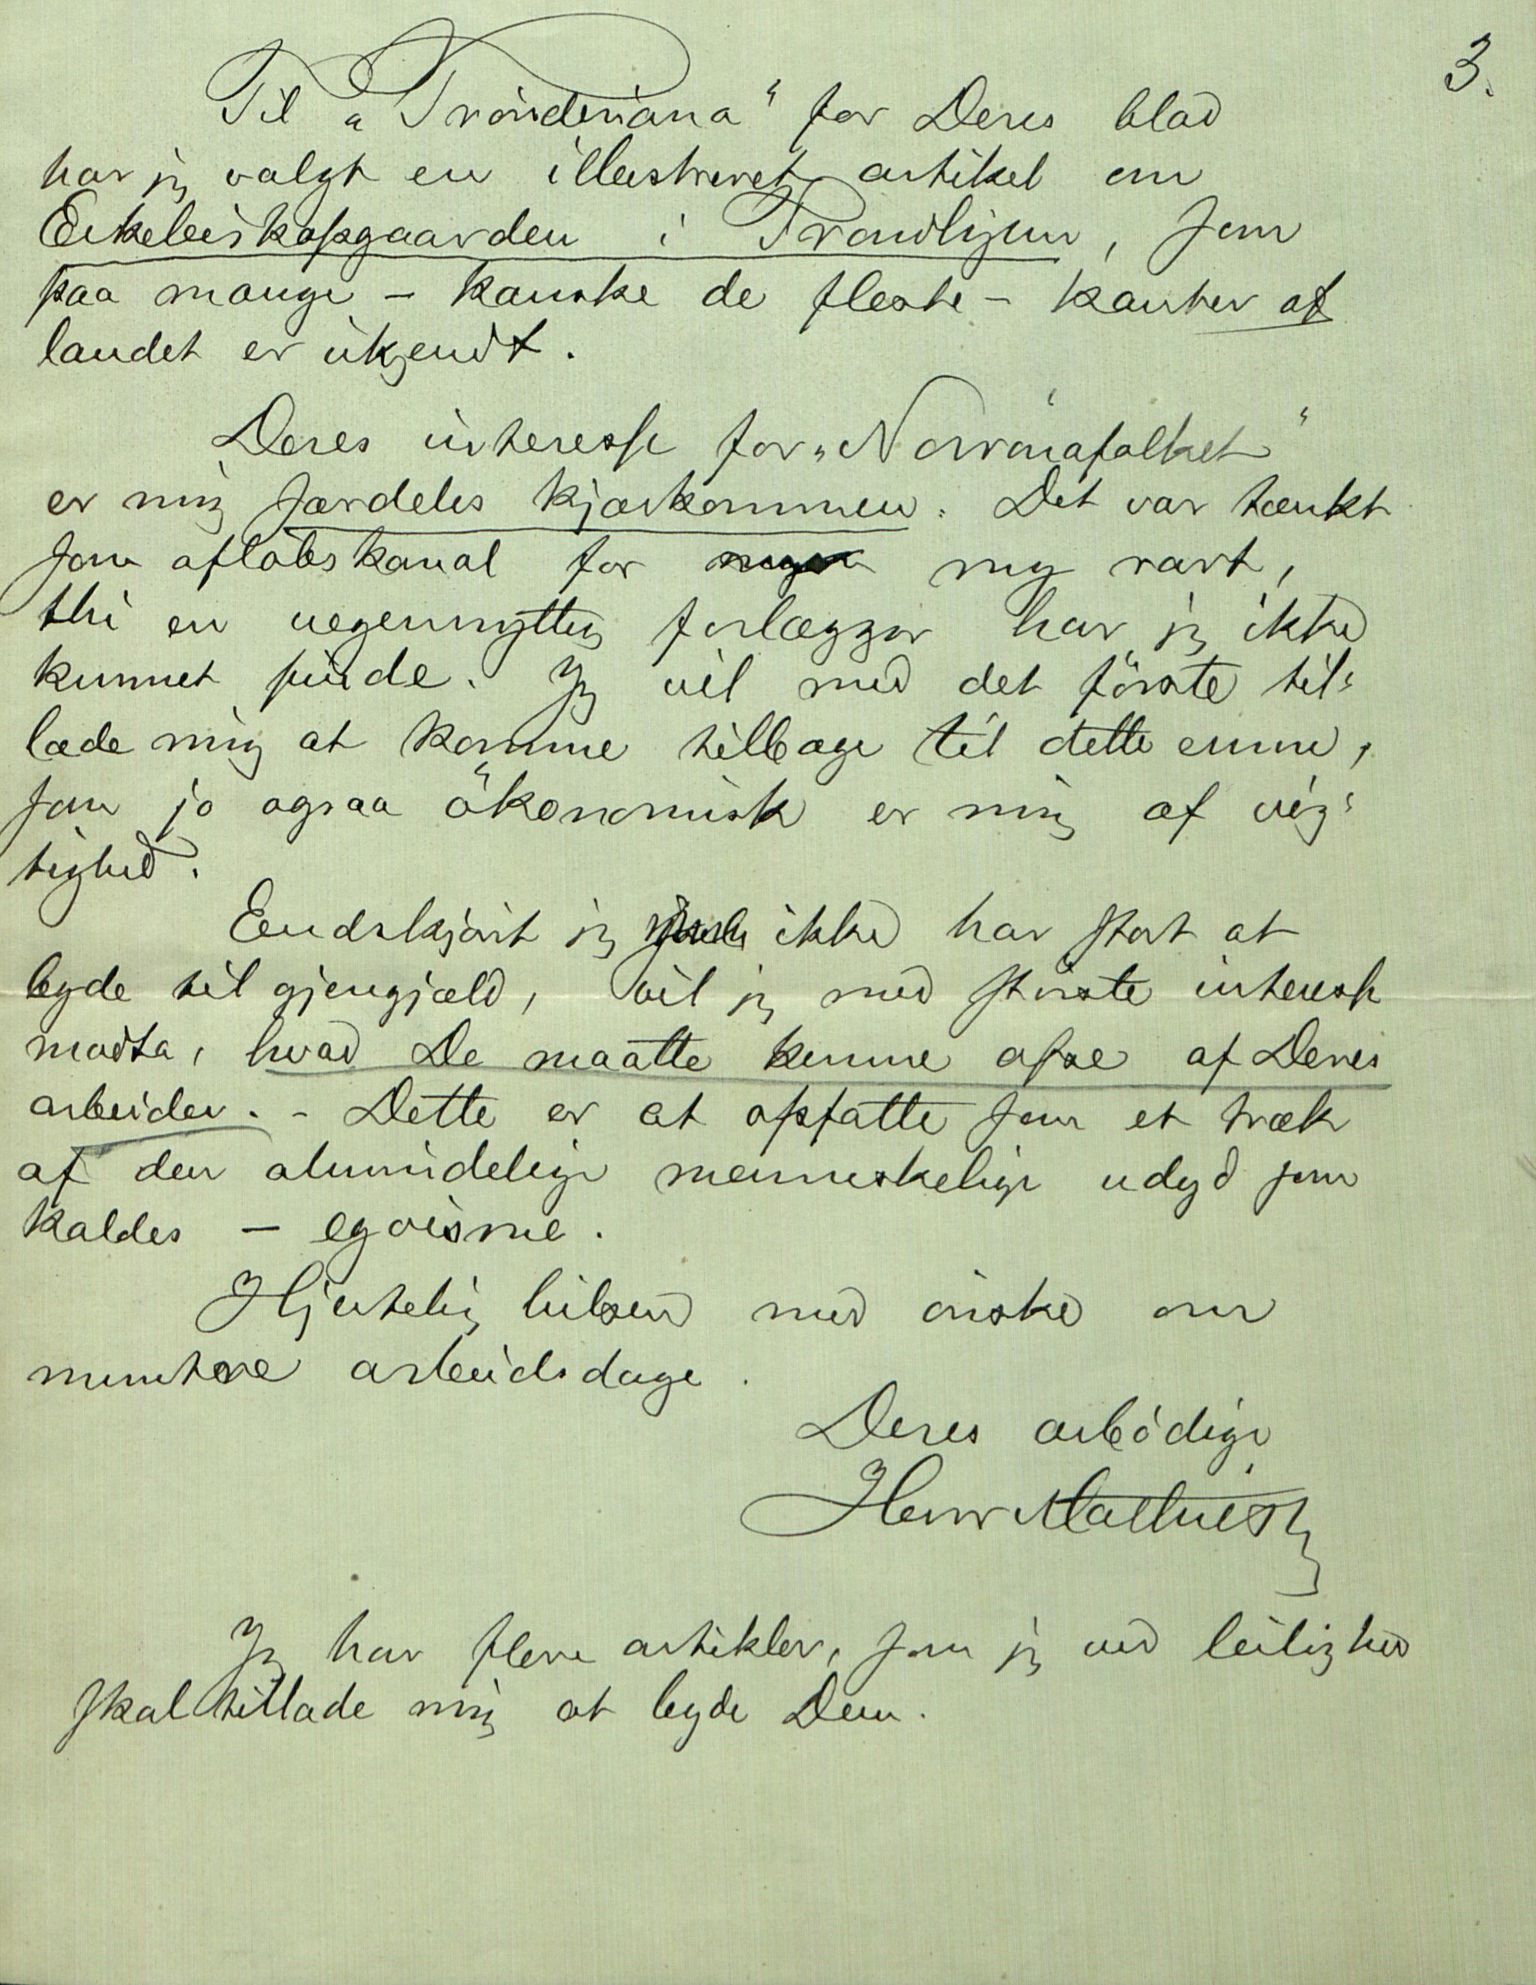 3.
Til „Trönderiana“ for Deres blad
har jeg valgt en illustreret artikel om
Erkebiskopsgaarden i Trondhjem, som
paa mange – kanske de fleste – kanter af
landet er ukjendt.
Deres interesse for „Norrönafolket“
er mig særdeles kjærkommen. Det var tænkt
som aflöbskanal for my rart,
thi en uegennyttig forlægger har jeg ikke
kunnet finde. Jeg vil med det förste til-
lade mig at komme tilbage til dette emne,
som jo ogsaa ökonomisk er mig af vig-
tighed.
Endskjönt jeg ikke har stort at
byde til gjengjæld, vil jeg med störste interesse
modta, hvad De maatte kunne afse af Deres
arbeider. – Dette er at opfatte som et træk
af den almindelige menneskelige udyd som
kaldes – egoisme.
Hjertelig hilsen med önske om
muntre arbeidsdage.
Deres ærbödige
Henr Mathiesen
Jeg har flere artikler, som jeg ved leilighed
skal tillade mig at byde Dem.